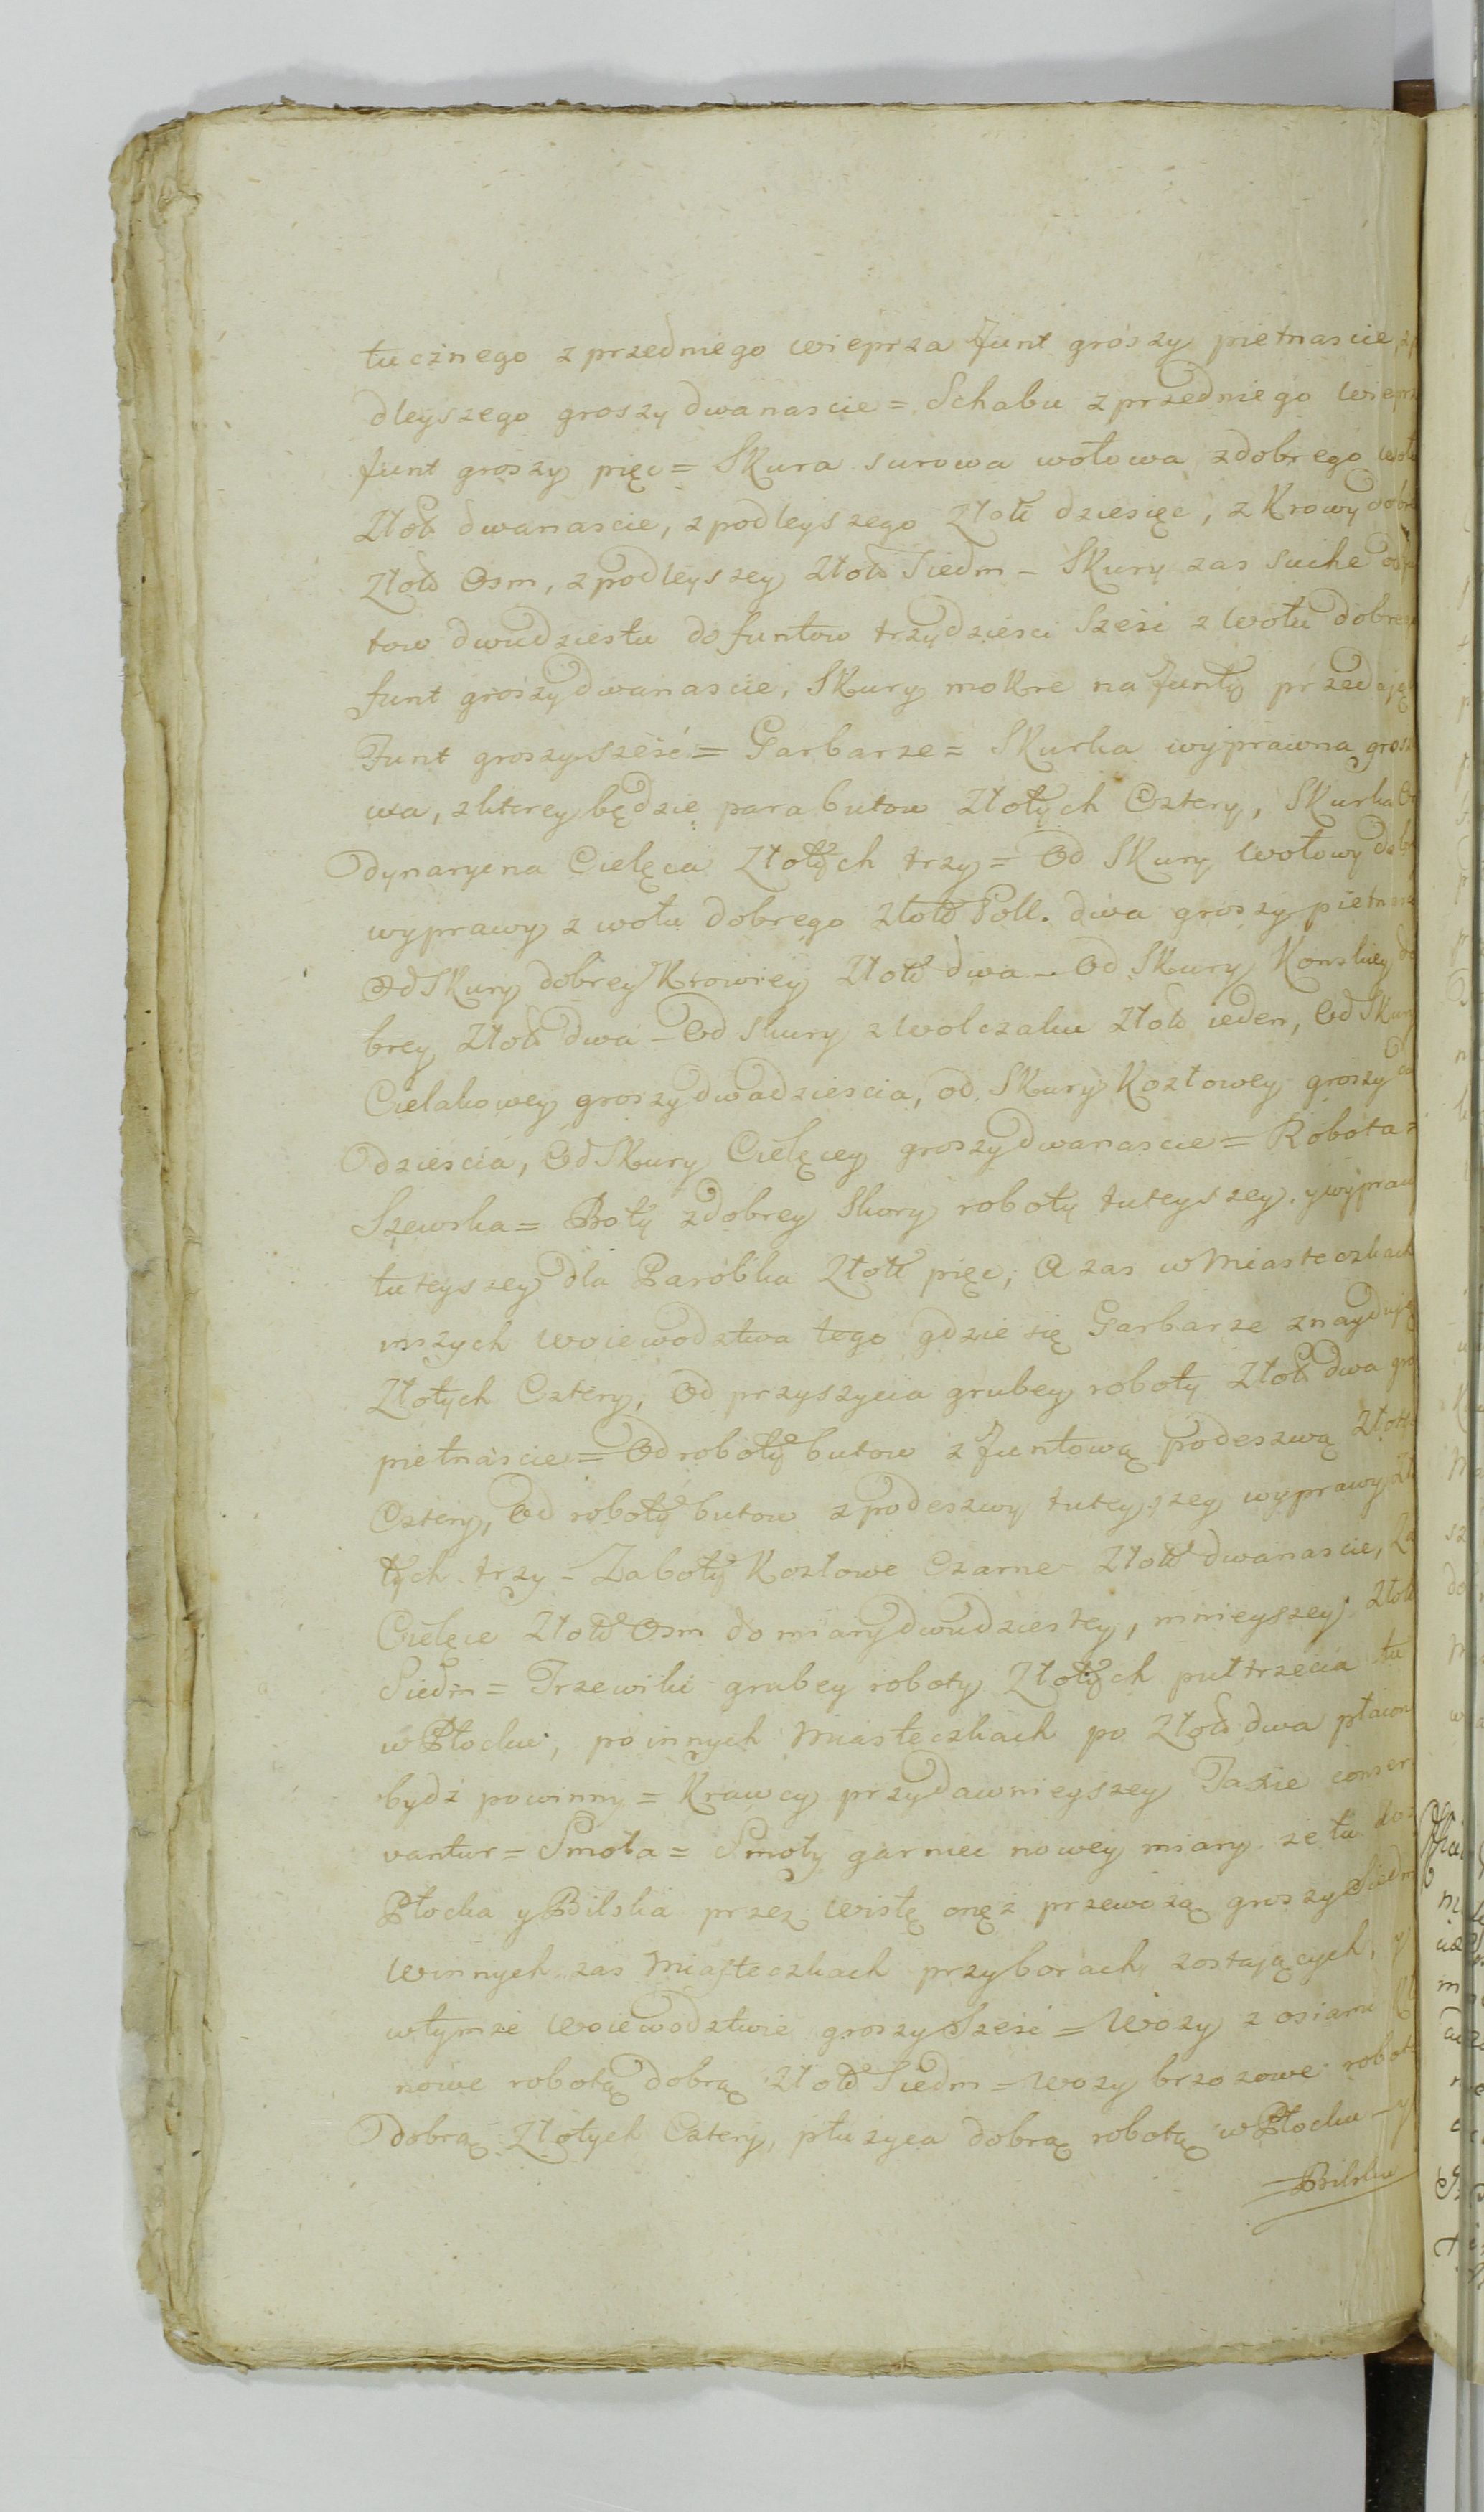 tucznego z przedniego wieprza funt groszy pietnascie, zpo
dleyszego groszy dwanascie = Schabu z przedniego wieprz
funt groszy pięc = Skura surowa wołowa zdobrego woł
Złoł dwanascie, zpodleyszego Złoł dziesięc, z Krowy dobr
Złoł Osm, zpodleyszey Złoł Siedm – Skury zas suche od fu
tow dwudziestu do funtow trzydziesci Sześc z wołu dobreg
funt groszy dwanascie, Skury mokre na funty przedają
Funt groszy sześć = Garbarze = Skurka wyprawna gros
wa, zktorey będzie para butow Złotych Cztery, Skurka Or
dynaryina Cielęca Złotych trzy = Od Skury wołowy dobr
wyprawy z wołu dobrego złoł Poll. dwa groszy pietnas
Od Skury dobrey Krowiey Złoł dwa – Od Skury Konskiey do
brey Złoł dwa – Od skury z wolczaku Złoł ieden, Od Skury
Cielakowey groszy dwadziescia, od Skury Kozłowey groszy
dziescia, Od Skury Cielęcey groszy dwanascie = Robota =
Szewska = Boty zdobrey Skory roboty tuteyszey y wypraw
tuteyszey dla Parobka Złoł pięc, A zas w Miasteczkach
inszych woiewodztwa tego gdzie się Garbarze znayduią
Złotych Cztery, Od przyszycia grubey roboty Złoł dwa gro
pietnaście = Od roboty butow z funtową podeszwą złoty
Cztery, Od roboty butow z podeszwy tuteyszey wyprawy Zło
tych trzy – Za boty Kozłowe Czarne Złoł dwanascie, Za
Cielęce Złoł Osm do miary dwudziestey, mnieyszey złoł
Siedm = Trzewiki grubey roboty Złotych pułtrzecia tu
w Płocku, po innych Miasteczkach po Złoł dwa płacon
bydź powinny = Krawcy przy dawnieyszey Taxie conser
vantur = Smoła = Smoły garniec nowey miary ze tu do
Płocka y Bilska przez wisłę onęż przewożą groszy Siedm
w innych zas Miasteczkach przyborach zostaiących, y
wtymze woiewodztwie groszy Sześć = Wozy z osiami
nowe robotą dobrą Złoł Siedm = Wozy brzozowe robot
dobrą Złotych Cztery, płużyca dobrą robotą w Płocku – y
= Bilsku